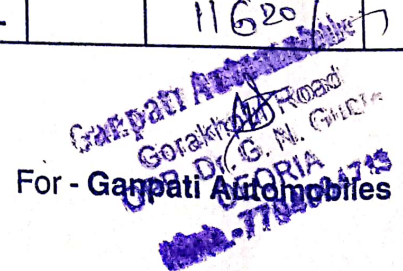 11620/-
Ganpati Automobiles
Gorakhpur Road
Opp. Dr. G. N.
DEORIA
For - Ganpati Automobiles